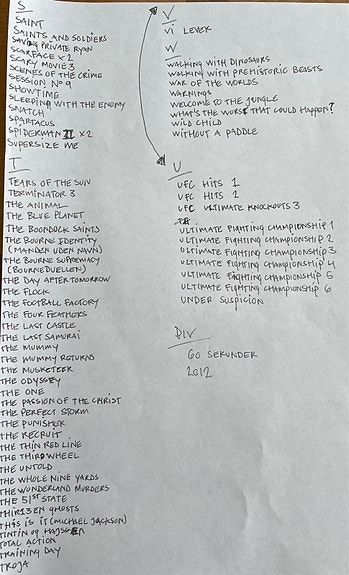 S
SAINT
SAINTS AND SOLDIERS
SAVING PRIVATE RYAN
SCARFACE x 2
SCARY MOVIE 3
SCENES OF THE CRIME
SESSION NO 9
SHOWTIME
SLEEPING WITH THE ENEMY
SNATCH
SPARTACUS
SPIDERMAN II x2
SUPERSIZE ME
T
TEARS OF THE SUN
TERMINATOR 3
THE ANIMAL
THE BLUE PLANET
THE BOONDOCK SAINTS
THE BOURNE IDENTITY
(MANDEN UDEN NAVN)
THE BOURNE SUPREMACY
(BOURNE DUELLEN)
THE DAY AFTER TOMORROW
THE FLOCK
THE FOOTBALL FACTORY
THE FOUR FEATHERS
THE LAST CASTLE
THE LAST SAMURAI
THE MUMMY
THE MUMMY RETURNS
THE MUSKETEER
THE ODYSSEY
THE ONE
THE PASSION OF THE CHRIST
THE PERFECT STORM
THE PUNISHER
THE RECRUIT
THE THIN RED LINE
THE THIRD WHEEL
THE UNTOLD
THE WHOLE NINE YARDS
THE WONDERLAND MURDERS
THE 51ST STATE
THIR13EN GHOSTS
THIS IS IT (MICHAEL JACKSON)
TINTIN OG HAJSØEN
TOTAL ACTION
TRAINING DAY
TROJA
V
VI LEVER
W
WALKING WITH DINOSAURS
WALKING WITH PREHISTORIC BEASTS
WAR OF THE WORLDS
WARNINGS
WELCOME TO THE JUNGLE
WHAT'S THE WORST THAT COULD HAPPEN?
WILD CHILD
WITHOUT A PADDLE
U
UFC HITS 1
UFC HITS 2
UFC ULTIMATE KNOCKOUTS 3
ULTIMATE FIGHTING CHAMPIONSHIP 1
ULTIMATE FIGHTING CHAMPIONSHIP 2
ULTIMATE FIGHTING CHAMPIONSHIP 3
ULTIMATE FIGHTING CHAMPIONSHIP 4
ULTIMATE FIGHTING CHAMPIONSHIP 5
ULTIMATE FIGHTING CHAMPIONSHIP 6
UNDER SUSPICION
DIV
60 SEKUNDER
2012